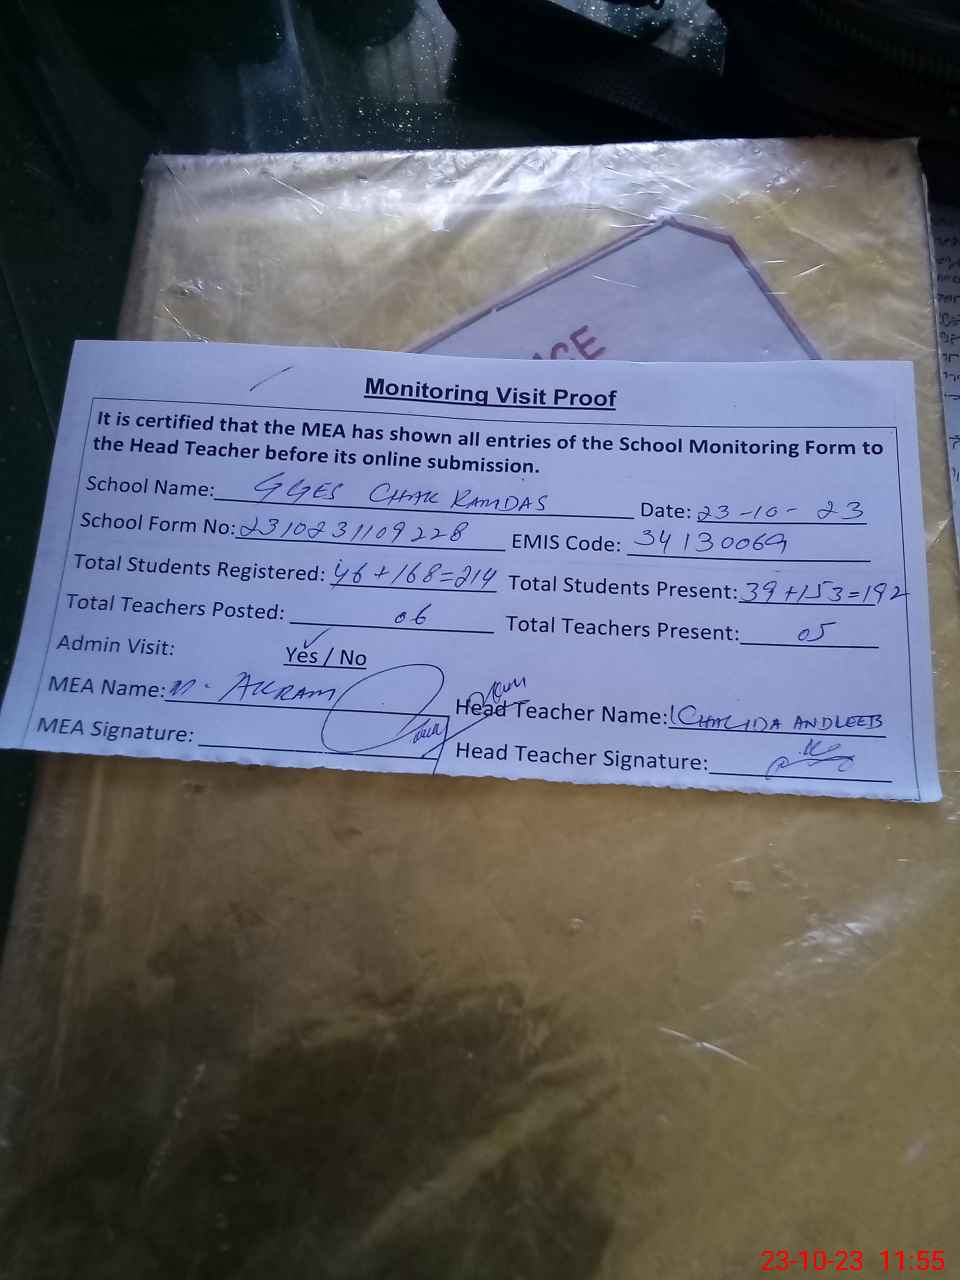 ICE
Monitoring Visit Proof
It is certified that the MEA has shown all entries of the School Monitoring Form to
the Head Teacher before its online submission.
School Name: GGES CHAK RAMDAS Date: 23-10-23
School Form No: 2310231109228 EMIS Code: 34130069
Total Students Registered: 46+168=214 Total Students Present: 39+153=192
Total Teachers Posted: 06 Total Teachers Present: 05
Admin Visit: Yes / No
MEA Name: M. AKRAM Head Teacher Name: KHALIDA ANDLEEB
MEA Signature: Head Teacher Signature:
23-10-23 11:55